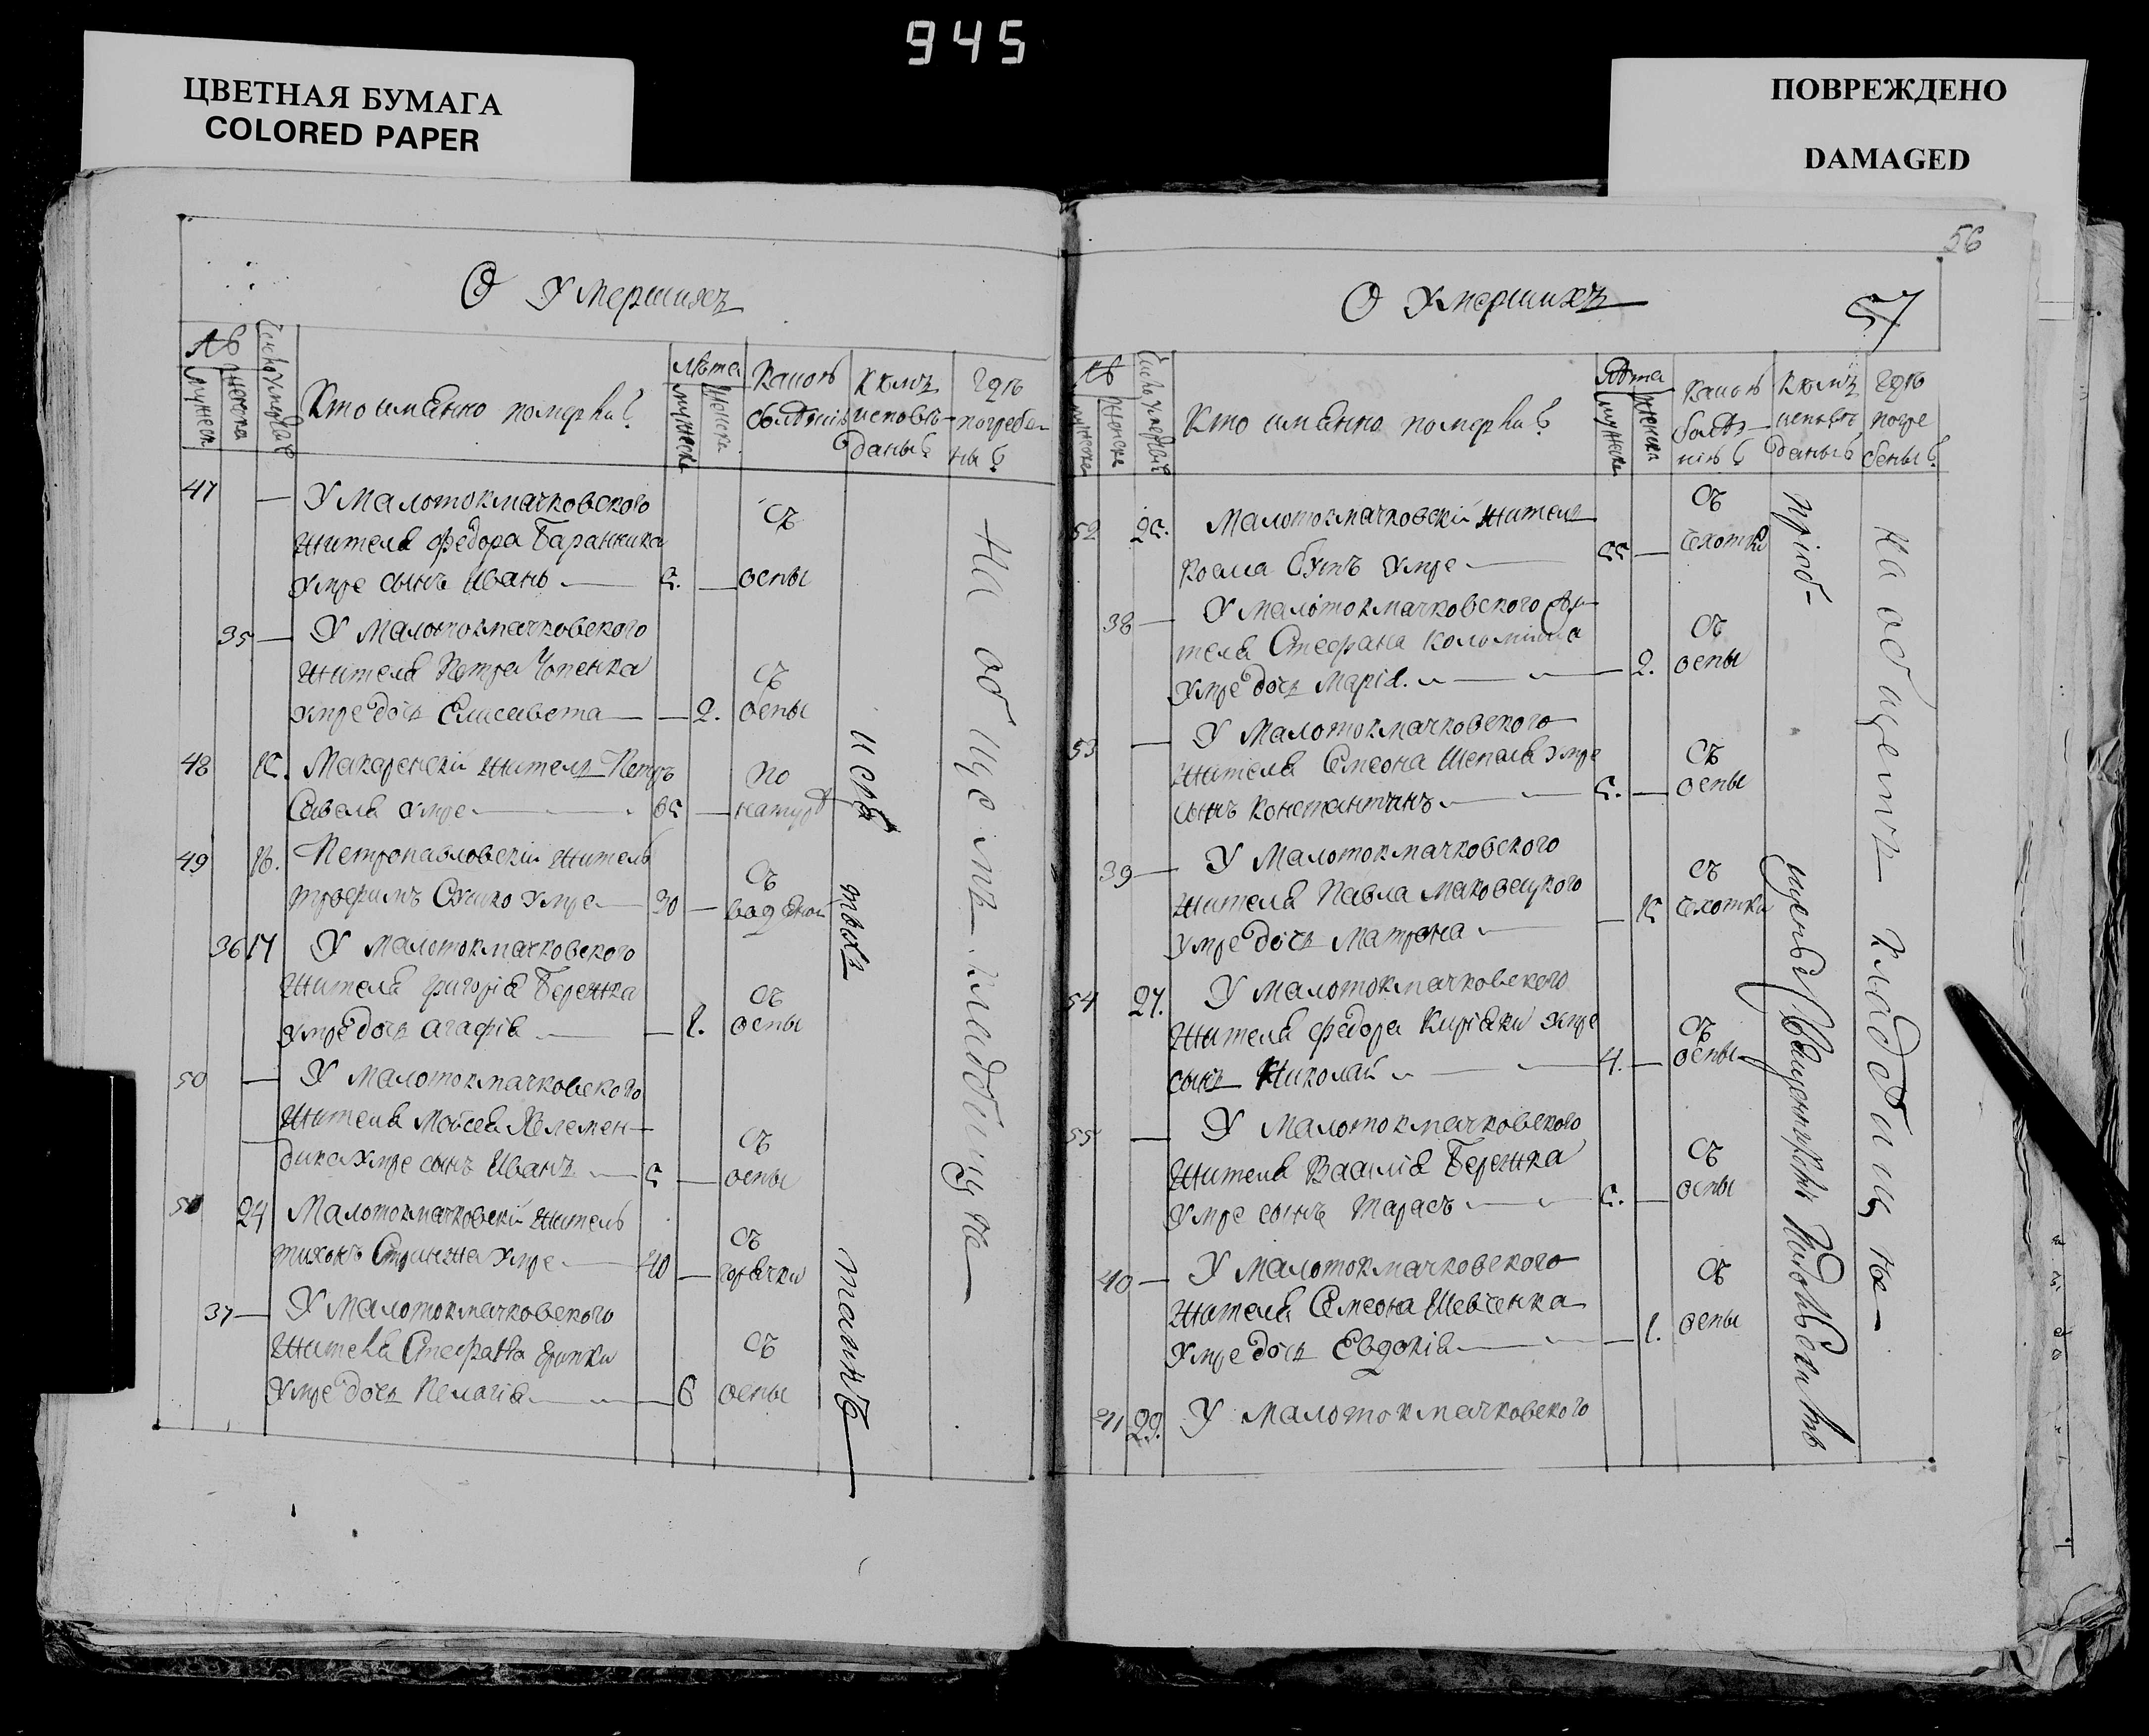 945
ЦВЕТНАЯ БУМАГА
COLORED PAPER
ПОВРЕЖДЕНО
DAMAGED
О Умершихъ
№
мужеск
женска
Кто имянно померли?
Лѣта
мужеска
женска
Какою болѣзнію
Къ кѣмъ исповѣданы?
Гдѣ погребены?
47 — У Малотокмачковского
жителя Федора Баранника
умре сынъ Иванъ — 5. — съ оспы
35 — У Малотокмачковского
жителя Петра Чопенка
умре дочь Елисавета — — 2. съ оспы
48 15. Макаренскій житель Петръ
Савела умре — 65 — по натурѣ
49 16. Петропавловскій житель
умре — 30 — съ
36 17 У Малотокмачковского
жителя Григорія Бережка
умре дочь Агафія — — 1. съ оспы
50 — У Малотокмачковского
жителя Мойсея Келемен-
дика умре сынъ Иванъ — 5 — съ оспы
51 24 Малотокмачковскій житель
Тихонъ умре — 40 — съ горячки
37 — У Малотокмачковского
жителя Стефана
умре дочь Пелагія — — 6 съ оспы
исповѣ
тамже
На общемъ кладбище
56
О Умершихъ
57
№
мужеска
женска
Кто имянно померли?
Лѣта
мужеска
женска
Какою болѣзнію?
Къ кѣмъ исповѣданы?
Гдѣ погребены?
52 25. Малотокмачковскій житель
Козма Бутъ умре — 55 — съ чехотки
38 — У Малотокмачковского жи-
теля Стефана Коломійца
умре дочь Марія. — — 2. съ оспы
53 — У Малотокмачковского
жителя Симеона Шепеля умре
сынъ Константинъ — 5. — съ оспы
39 — У Малотокмачковского
жителя Павла Маковецкого
умре дочь Матрона — — 15 съ чехотки
54 27. У Малотокмачковского
жителя Федора Киріяки умре
сынъ Николай — 4. — съ оспы
55 — У Малотокмачковского
жителя Василія Бережка
умре сынъ Тарасъ — 5. — съ оспы
40 — У Малотокмачковского
жителя Симеона Шевченка
умре дочь Евдокія — — 1. съ оспы
41 29. У Малотокмачковского
пріобщены Священникомъ
На общемъ кладбищѣ